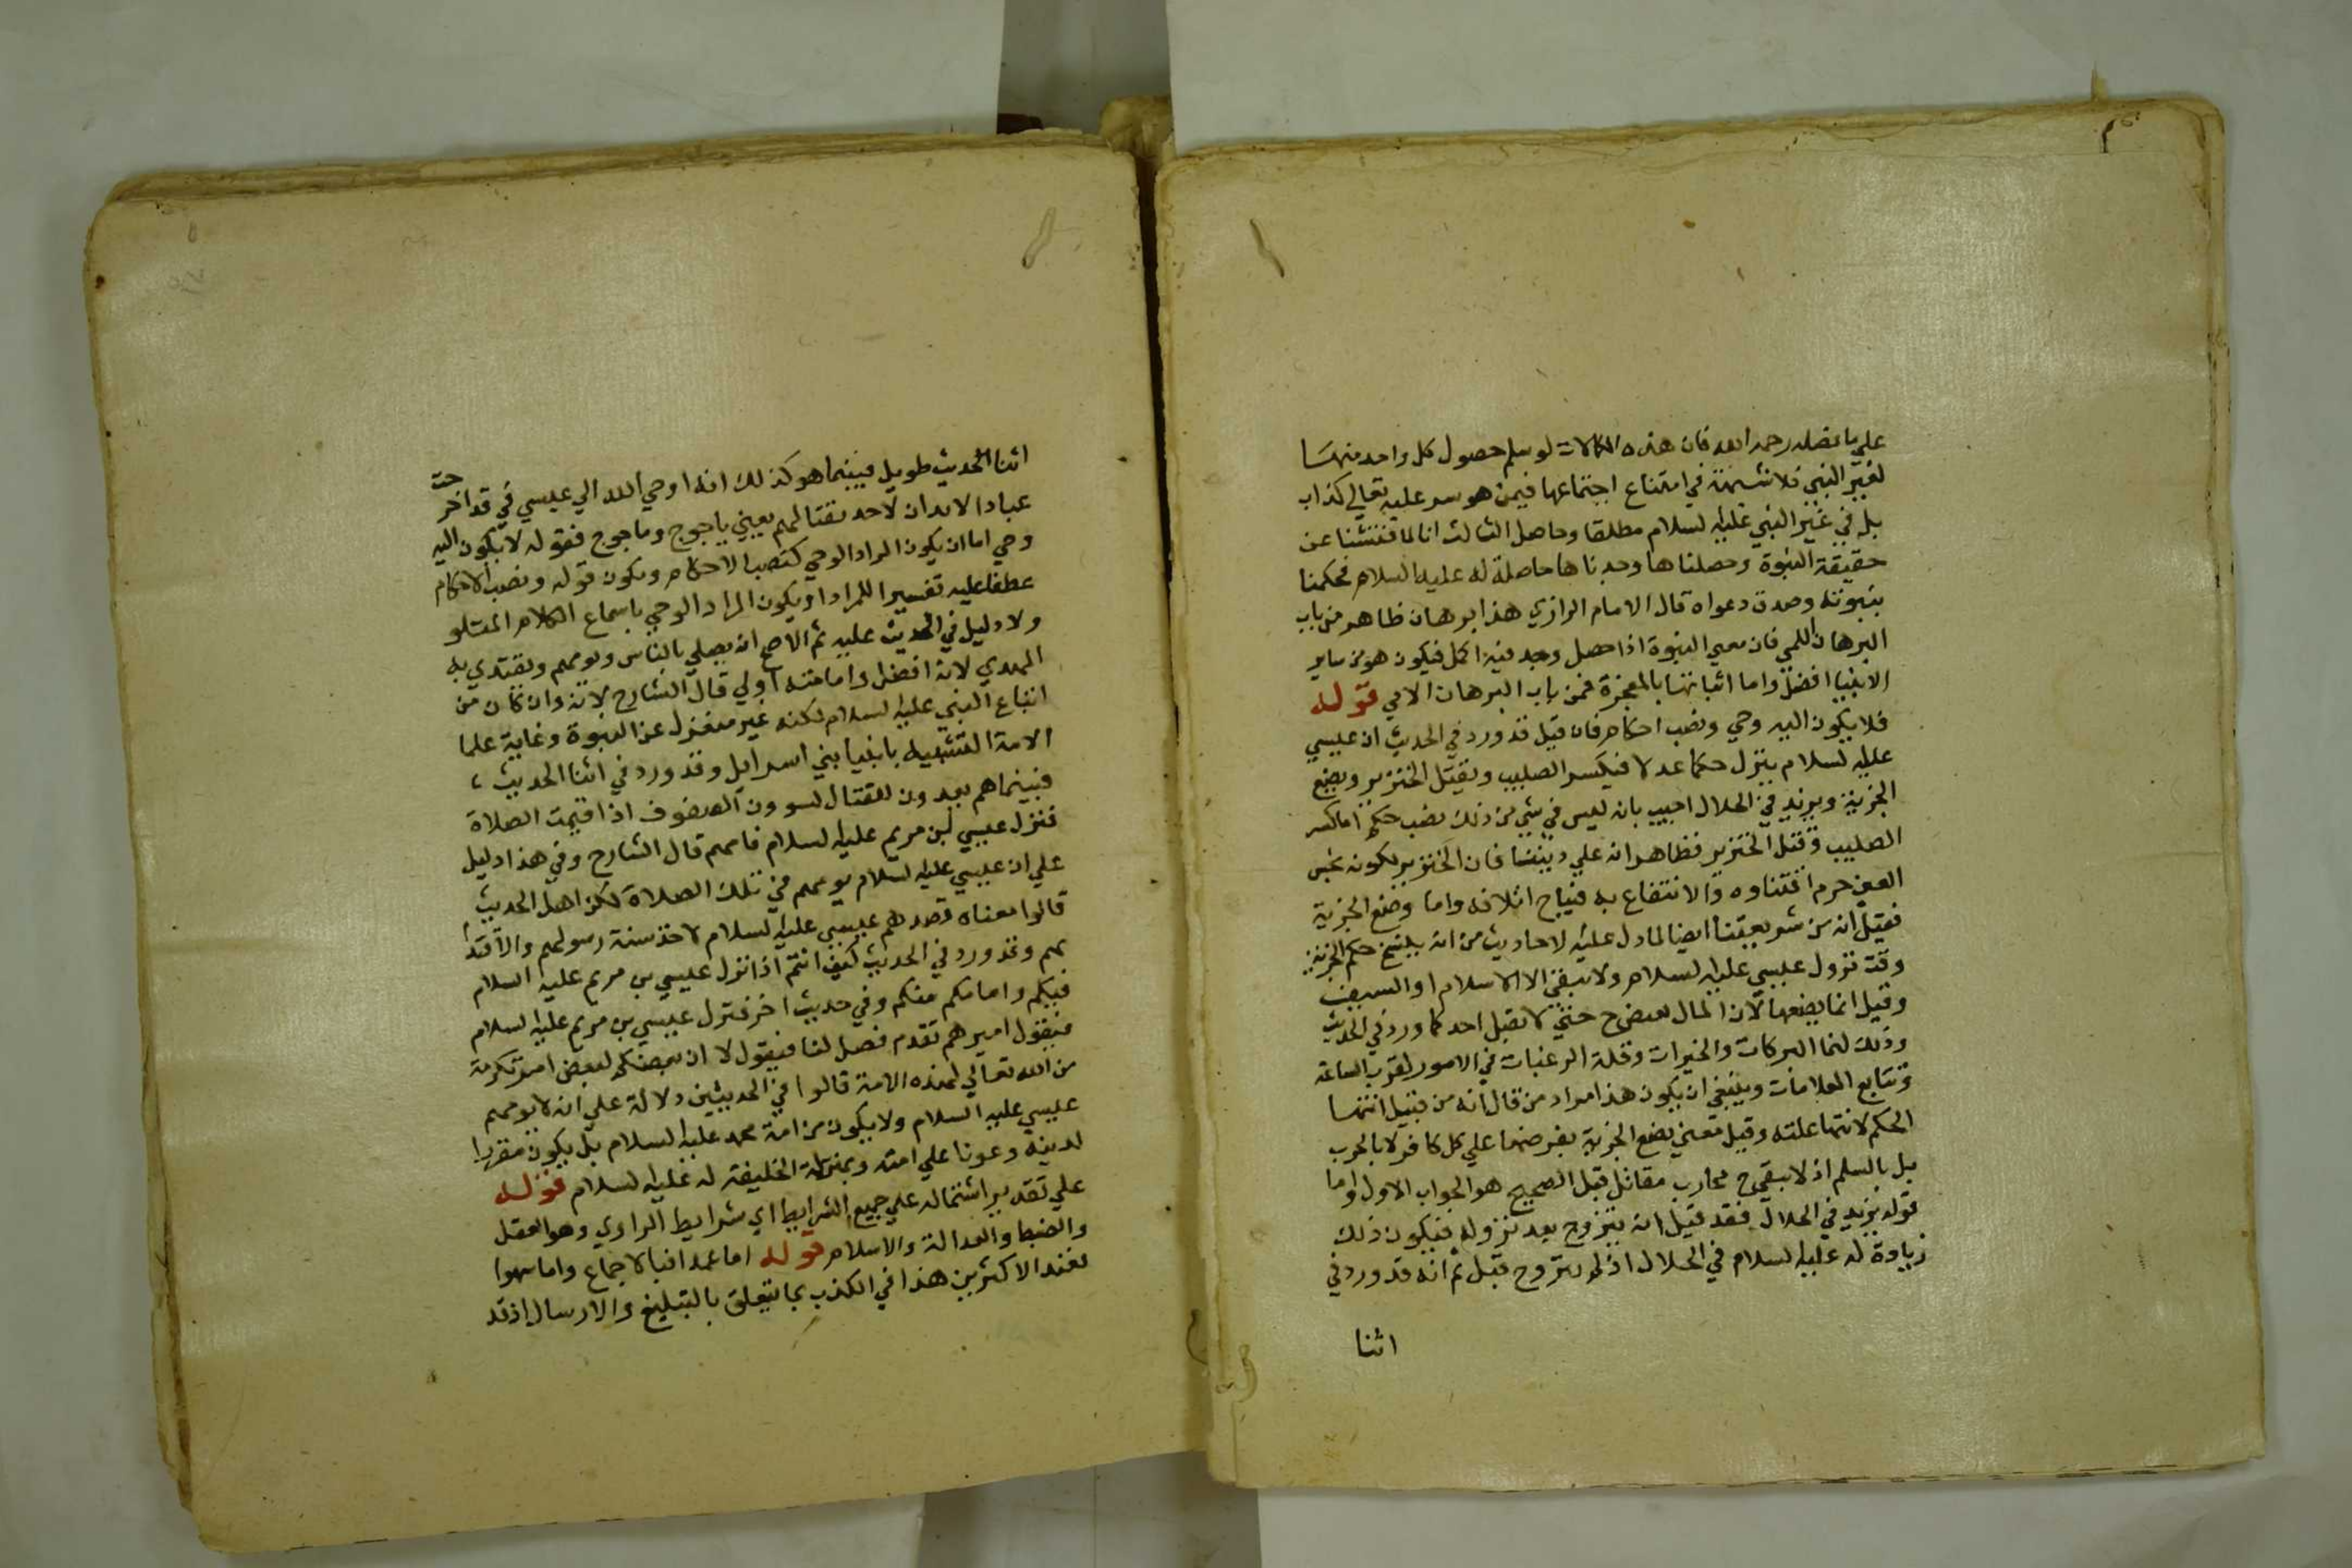 علي ما فضله رحمه الله فان هذه الكمالات لو سلم حصول كل واحد منها
لغير النبي فلا شبهة في امتناع اجتماعها فيمن هو سر عليه تعالي كذاب
بل في غير النبي عليه لسلام مطلقا وحاصل الثالث انا لما فتشنا عن
حقيقة النبوة وحصلناها وجدناها حاصلة له عليه السلام فحكمنا
بنبوته وصدق دعواه قال الامام الرازي هذا برهان ظاهر من باب
البرهان اللمي فان معني النبوة اذا حصل وجد فيه اكمل فيكون هو من ساير
الانبيا افضل واما اثباتها بالمعجزة فمن باب البرهان الاني قوله
فلا يكون اليه وحي ونصب احكام فان قيل قد ورد في الحديث ان عيسي
عليه لسلام ينزل حكما عدلا فيكسر الصليب ويقتل الخنزير ويضع
الجزية ويزيد في الحلال اجيب بان ليس في شي من ذلك نصب حكم اما كسر
الصليب وقتل الخنزير فظاهر انه علي ديننا فان الخنزير لكونه نجس
العين حرم اقتناوه والانتفاع به فيباح اتلافه واما وضع الجزية
فقيل انه من شريعتنا ايضا لما دل عليه لاحاديث من انه ينسخ حكم الجزية
وقت نزول عيسي عليه لسلام ولا يبقي الا الاسلام او السيف
وقيل انما يضعها لان المال يفيض ح حتي لا يقبل احد كما ورد في الحديث
وذلك لنما البركات والخيرات وقلة الرغبات في الامور لقرب الساعة
وتتابع العلامات وينبغي ان يكون هذا مراد من قال انه من قبيل انتها
الحكم لانتها علته وقيل معني يضع الجزية يفرضها علي كل كافر لا بالحرب
بل بالسلم اذ لا يبقي ح محارب مقاتل قيل الصحيح هو الجواب الاول واما
قوله يزيد في الحلال فقد قيل انه يتزوج بعد نزوله فيكون ذلك
زيادة له عليه لسلام في الحلال اذ لم يتزوج قبل ثم انه قد ورد في
اثنا
اثنا الحديث طويل فبينما هو كذلك انه اوحي الله الي عيسي في قد اخرجت
عبادا لا يدان لاحد بقتالهم يعيني ياجوج وماجوج فقوله لا يكون اليه
وحي اما ان يكون المراد الوحي كنصب الاحكام ويكون قوله ونصب الاحكام
عطفا عليه تفسيرا للمراد او يكون المراد الوحي باسماع الكلام المتلو
ولا دليل في الحديث عليه ثم الاصح انه يصلي بالناس ويومهم ويقتدي به
المهدي لانه افضل وامامته اولي قال الشارح لانه وان كان من
اتباع النبي عليه لسلام لكنه غير منعزل عن النبوة وغاية علما
الامة التشبيه بانبيا بني اسرايل وقد ورد في اثنا الحديث
فبينما هم يعدون للقتال يسوون الصفوف اذا قيمت الصلاة
فنزل عيسي ابن مريم عليه لسلام فامهم قال الشارح وفي هذا دليل
علي ان عيسي عليه لسلام يومهم في تلك الصلاة لكن اهل الحديث
قالوا معناه قصدهم عيسي عليه لسلام لاخذ سنة رسولهم والاقتدا
بهم وقد ورد في الحديث كيف انتم اذا نزل عيسي بن مريم عليه السلام
فيكم وامامكم منكم وفي حديث اخر فنزل عيسي بن مريم عليه لسلام
فيقول اميرهم تقدم فصل لنا فيقول لا ان بعضكم لبعض امير تكرمة
من الله تعالي لهذه الامة قالوا في الحديثين دلالة علي انه لا يومهم
عيسي عليه السلام ولا يكون من امة محمد عليه لسلام بل يكون مقررا
لدينه وعونا علي امته وبمنزلة الخليفة له عليه لسلام قوله
علي تقدير اشتماله علي جميع الشرايط اي شرايط الراوي وهو العقل
والضبط والعدالة والاسلام قوله اما عمدا فبالاجماع واما سهوا
فعند الاكثرين هذا في الكذب بما يتعلق بالتبليغ والارسال اذ قد